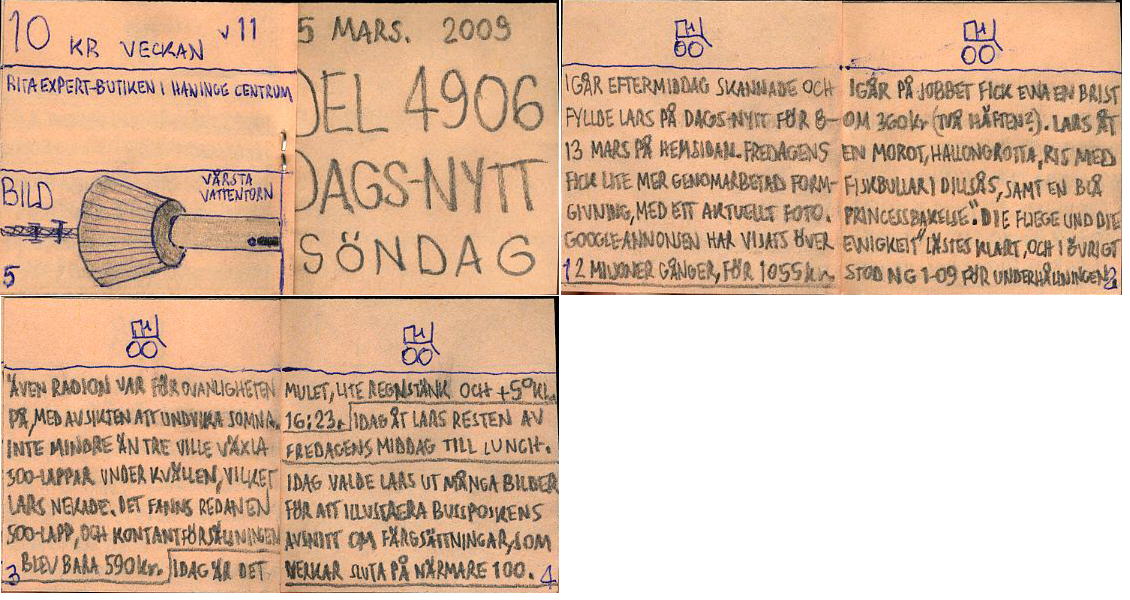 10 KR VECKAN v 11
RITA EXPERT-BUTIKEN I HANINGE CENTRUM
BILD
VÄRSTA
VATTENTORN
5
5 MARS. 2009
DEL 4906
DAGS-NYTT
SÖNDAG
IGÅR EFTERMIDDAG SKANNADE OCH
FYLLDE LARS PÅ DAGS-NYTT FÖR 8-
13 MARS PÅ HEMSIDAN. FREDAGENS
FICK LITE MER GENOMARBETAD FORM-
GIVNING, MED ETT AKTUELLT FOTO.
GOOGLE-ANNONSEN HAR VISATS ÖVER
12 MILJONER GÅNGER, FÖR 1055 kr.
IGÅR PÅ JOBBET FICK EWA EN BRIST
OM 360kr (TVÅ HÄFTEN?). LARS ÅT
EN MOROT, HALLONGROTTA, RIS MED
FISKBULLAR I DILLSÅS, SAMT EN BLÅ
PRINCESSBAKELSE. "DIE FLIEGE UND DIE
EWIGKEIT" LÄSTES KLART, OCH I ÖVRIGT
STOD NG 1-09 FÖR UNDERHÅLLNINGEN.
2
ÄVEN RADION VAR FÖR OVANLIGHETEN
PÅ, MED AVSIKTEN ATT UNDVIKA SOMNA.
INTE MINDRE ÄN TRE VILLE VÄXLA
500-LAPPAR UNDER KVÄLLEN, VILKET
LARS NEKADE. DET FANNS REDAN EN
500-LAPP, OCH KONTANTFÖRSÄLJNINGEN
BLEV BARA 590kr. IDAG ÄR DET
3
MULET, LITE REGNSTÄNK OCH +5° KL.
16:23. IDAG ÅT LARS RESTEN AV
FREDAGENS MIDDAG TILL LUNCH.
IDAG VALDE LARS UT MÅNGA BILDER
FÖR ATT ILLUSTRERA BUSSPOJKENS
AVSNITT OM FÄRGSÄTTNINGAR, SOM
VERKAR SLUTA PÅ NÄRMARE 100.
4